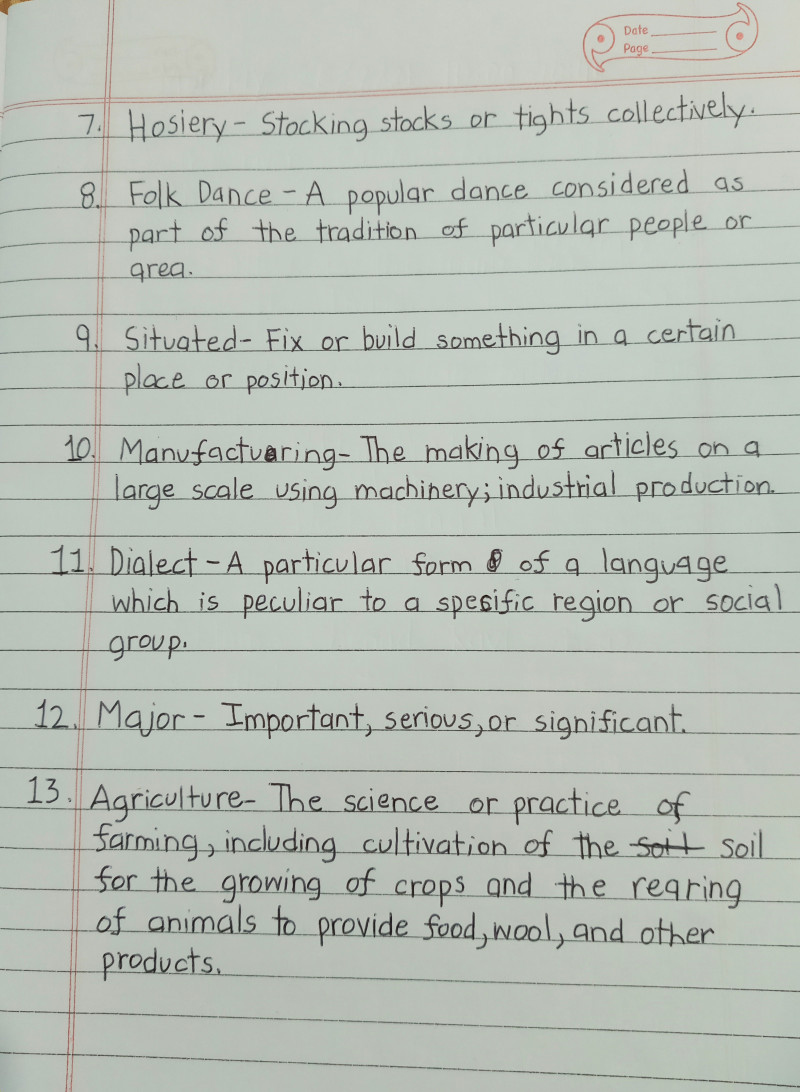 Date
Page
7. Hosiery - Stocking stocks or tights collectively.
8. Folk Dance - A popular dance considered as
part of the tradition of particular people or
area.
9. Situated - Fix or build something in a certain
place or position.
10. Manufactuering - The making of articles on a
large scale using machinery; industrial production.
11. Dialect - A particular form of a language
which is peculiar to a spesific region or social
group.
12. Major - Important, serious, or significant.
13. Agriculture - The science or practice of
farming, including cultivation of the soil soil
for the growing of crops and the rearing
of animals to provide food, wool, and other
products.